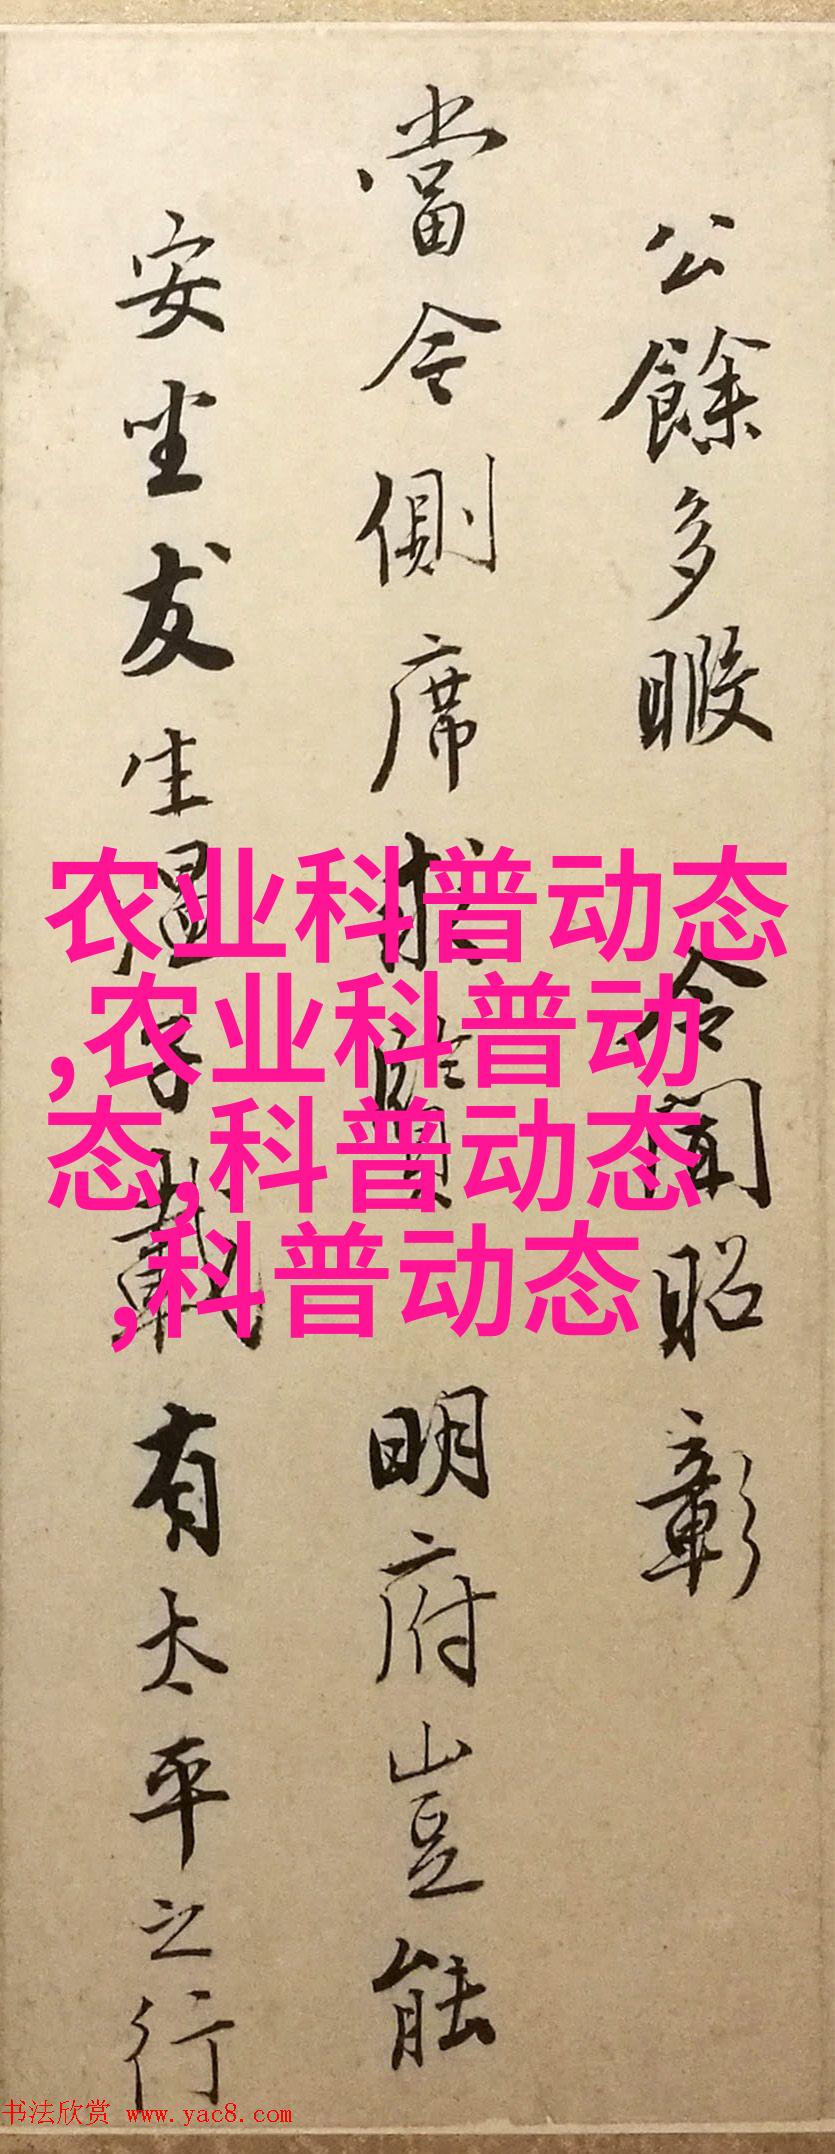 公餘多暇 令聞昭彰
當令側席求賢明府豈能
安坐友生溫子載有太平之行
农业科普动态
,农业科普动
态,科普动态
,科普动态
书法欣赏 www.yac8.com